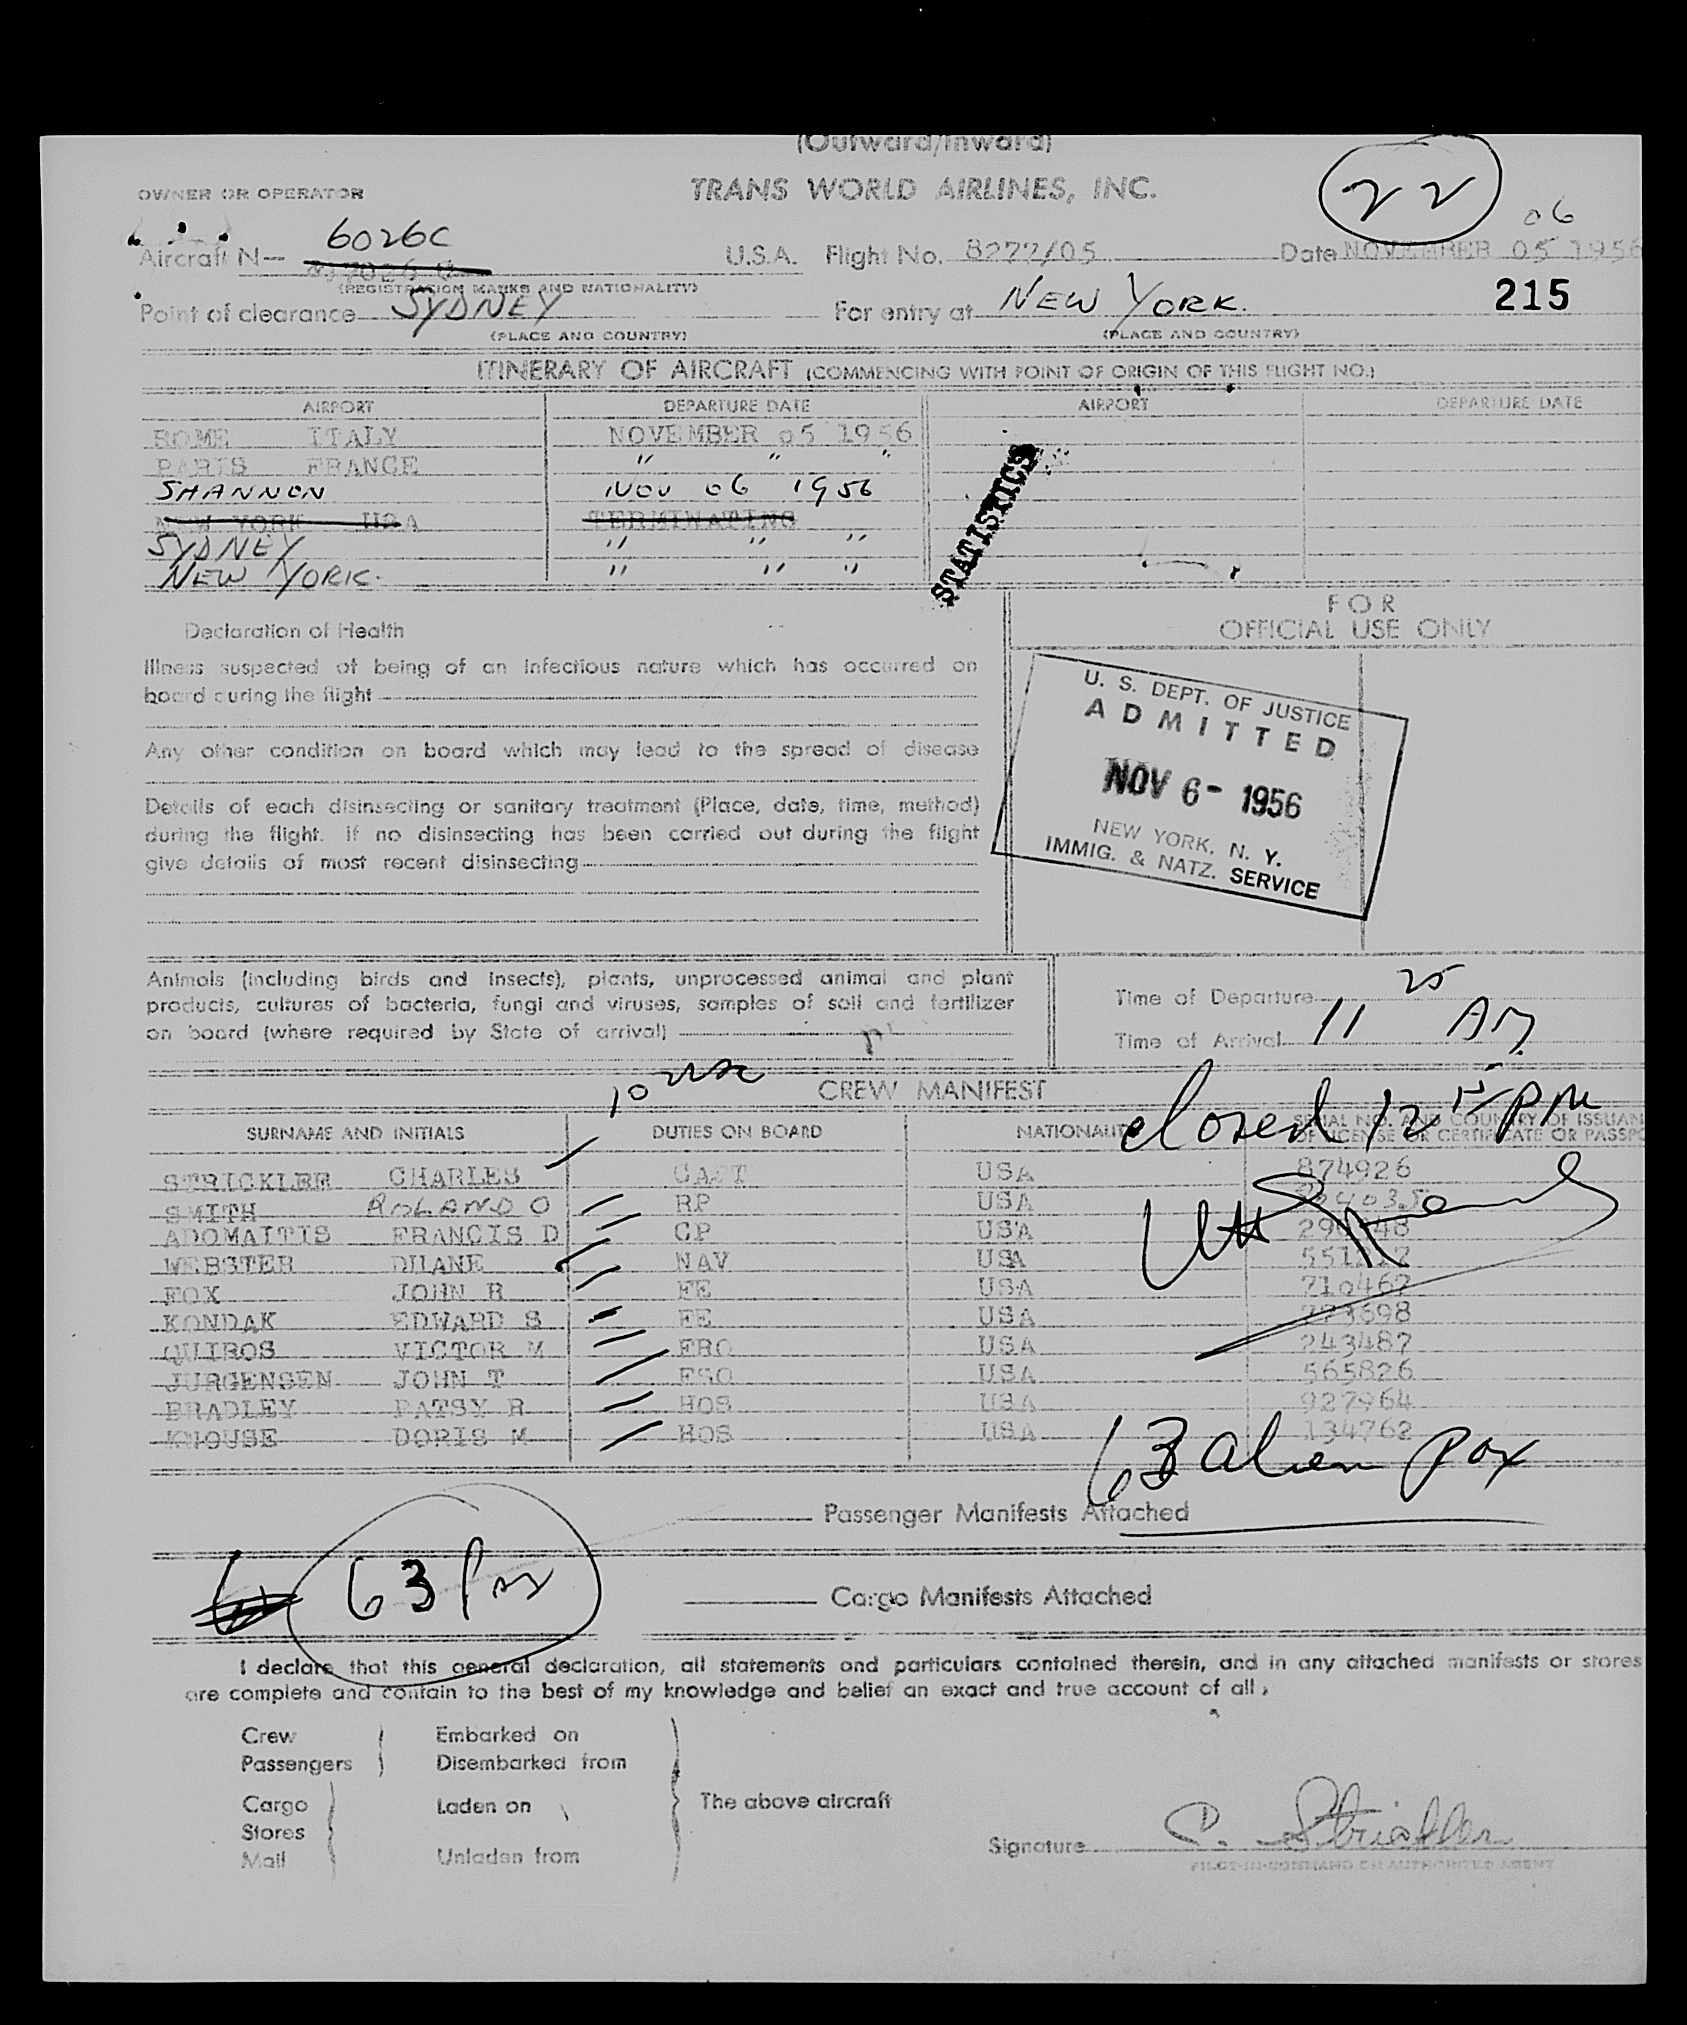 (Outward/Inward)
OWNER OR OPERATOR
TRANS WORLD AIRLINES, INC.
22
06
6026C
Aircraft N— U.S.A. Flight No. 8277/05 Date NOVEMBER 05 1956
(REGISTRATION MARKS AND NATIONALITY)
Point of clearance SYDNEY For entry at NEW YORK. 215
(PLACE AND COUNTRY) (PLACE AND COUNTRY)
ITINERARY OF AIRCRAFT (COMMENCING WITH POINT OF ORIGIN OF THIS FLIGHT NO.)
AIRPORT DEPARTURE DATE AIRPORT DEPARTURE DATE
ROME ITALY NOVEMBER 05 1956
PARIS FRANCE " " "
SHANNON NOV 06 1956
NEW YORK USA TERMINATING
SYDNEY " " "
NEW YORK. " " "
STATISTICS
FOR
OFFICIAL USE ONLY
Declaration of Health
Illness suspected of being of an infectious nature which has occurred on
board during the flight
Any other condition on board which may lead to the spread of disease
Details of each disinsecting or sanitary treatment (Place, date, time, method)
during the flight. If no disinsecting has been carried out during the flight
give details of most recent disinsecting
U. S. DEPT. OF JUSTICE
ADMITTED
NOV 6- 1956
NEW YORK, N. Y.
IMMIG. & NATZ. SERVICE
Animals (including birds and insects), plants, unprocessed animal and plant
products, cultures of bacteria, fungi and viruses, samples of soil and fertilizer
on board (where required by State of arrival)
Time of Departure
Time of Arrival 11 25 AM
10 USC
CREW MANIFEST
closed 12 15 PM
SURNAME AND INITIALS DUTIES ON BOARD NATIONALITY SERIAL NO. AND COUNTRY OF ISSUAN
OF LICENSE OR CERTIFICATE OR PASSPO
STRICKLER CHARLES CAPT USA 874926
SMITH ROLAND O RP USA
ADOMAITIS FRANCIS D CP USA
WEBSTER DUANE NAV USA
FOX JOHN R FE USA 710467
KONDAK EDWARD S FE USA 773698
QUIROS VICTOR M FRO USA 243487
JURGENSEN JOHN T FSO USA 565826
BRADLEY PATSY R HOS USA 927964
KNOUSE DORIS M HOS USA 134762
63 alien pax
Passenger Manifests Attached
63 Pax
Cargo Manifests Attached
I declare that this general declaration, all statements and particulars contained therein, and in any attached manifests or stores
are complete and contain to the best of my knowledge and belief an exact and true account of all,
Crew Embarked on
Passengers Disembarked from
Cargo Laden on The above aircraft
Stores
Mail Unladen from
Signature C. Strickler
PILOT-IN-COMMAND OR AUTHORIZED AGENT